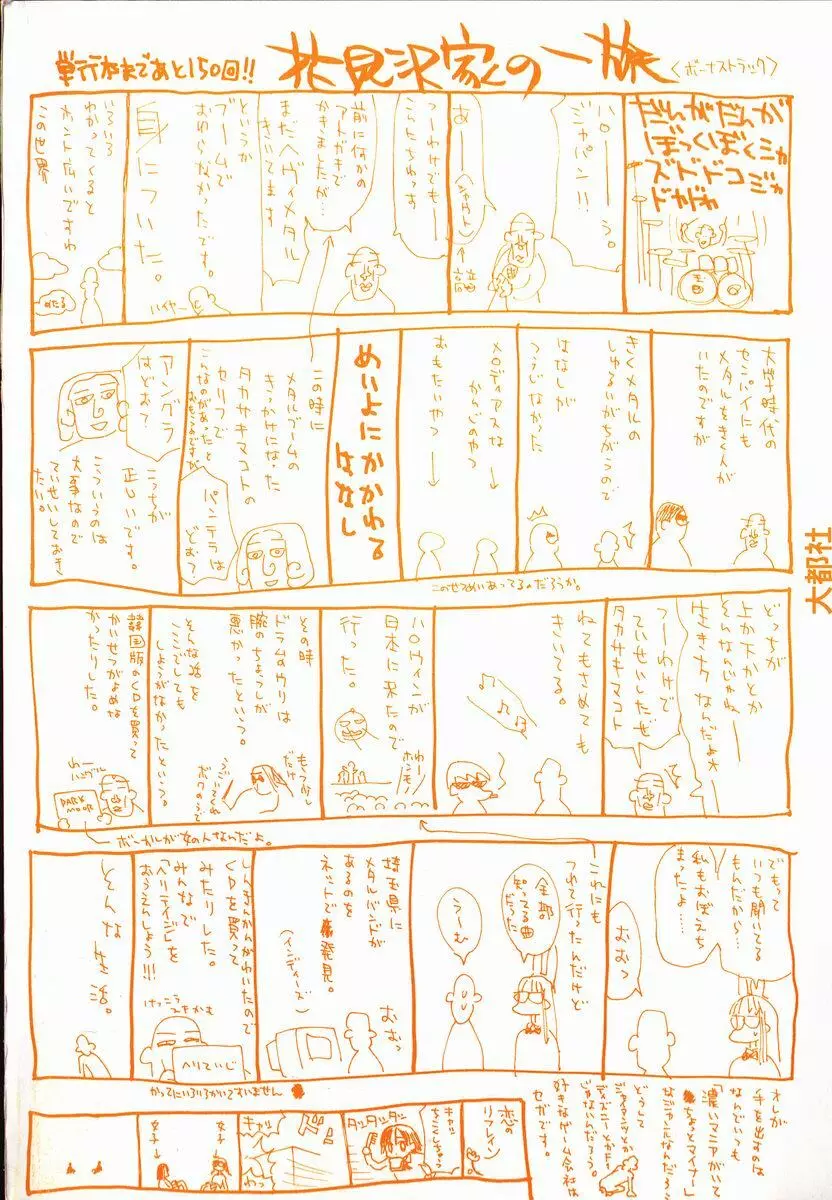 単行本まであと150回!!
花見沢家の一族
〈ボーナストラック〉
だんがだんが
ぼっくぼくジャ
ズドドコジャ
ドガガ
ハローーう。
ジャパン!!
あーー(シャウト)
つーわけでもー
こんにちわっす
前に何かの
アトガキで
かきましたが…
まだヘヴィメタル
きいてます
というか
ブームで
おわらなかったです。
身についた。
ハイヤー
いろいろ
わかってくると
ホント広いですね
この世界
めたる
大学時代の
センパイにも
メタルをきく人が
いたのですが
きくメタルの
しゅるいがちがうので
はなしが
つうじなかった
メロディアスな
かんじのやつ
おもたいやつ
このせつめいあってるのだろうか。
めいよにかかわる
はなし
この時に
メタルブームの
きっかけになった
タカサキマコトの
セリフで
こんなのがあったと
おもうのですが
パンテラは
どお?
アングラ
はどお?
こっちが
正しいです。
こういうのは
大事なので
ていせいしておき
たい。
どっちが
上か下かとか
そんなんじゃねー
生き方なんだよ
つーわけで
ていせいしたぜ
タカサキマコト
ねてもさめても
きいてる。
ハロウィンが
日本に来たので
行った。
わー
ホンモノ
その時
ドラムのウリは
腕のちょうしが
悪かったという。
もう少し
だけ
うごいてくれ
ボクのうで
そんな話を
ここでしても
しようがなかったという。
韓国版のCDを買って
かいせつがよめな
かったりした。
わー
ハングル
DARK
MOOR
ボーカルが女の人なんだよ。
でもって
いつも聞いてる
もんだから…
私もおぼえち
まったよ……
おおっ
これにも
つれて行ったんだけど
全部
知ってる曲
だった
うーむ
埼玉県に
メタルバンドが
あるのを
ネットで発見。
(インディーズ)
おおっ
しんきんかんがわいたので
CDを買って
みたりした。
みんなで
「ヘリテイジ」を
おうえんしょう!!!
けっこう
ヘリていじ
そんな
生活。
かってにいろいろかいてすいません
オレが
手を出すのは
なんでいつも
「濃いマニアがいて
ちょっとマイナー」
なジャンルなんだろう
どうして
ジャニタレとか
ディズニーとか
じゃないんだろう。
好きなゲーム会社は
セガです。
恋の
リフレイン
キャッ
ちこくしちゃう
ダッダッダッ
ドン
キャッ
わっ
女子→
女子→
大都社